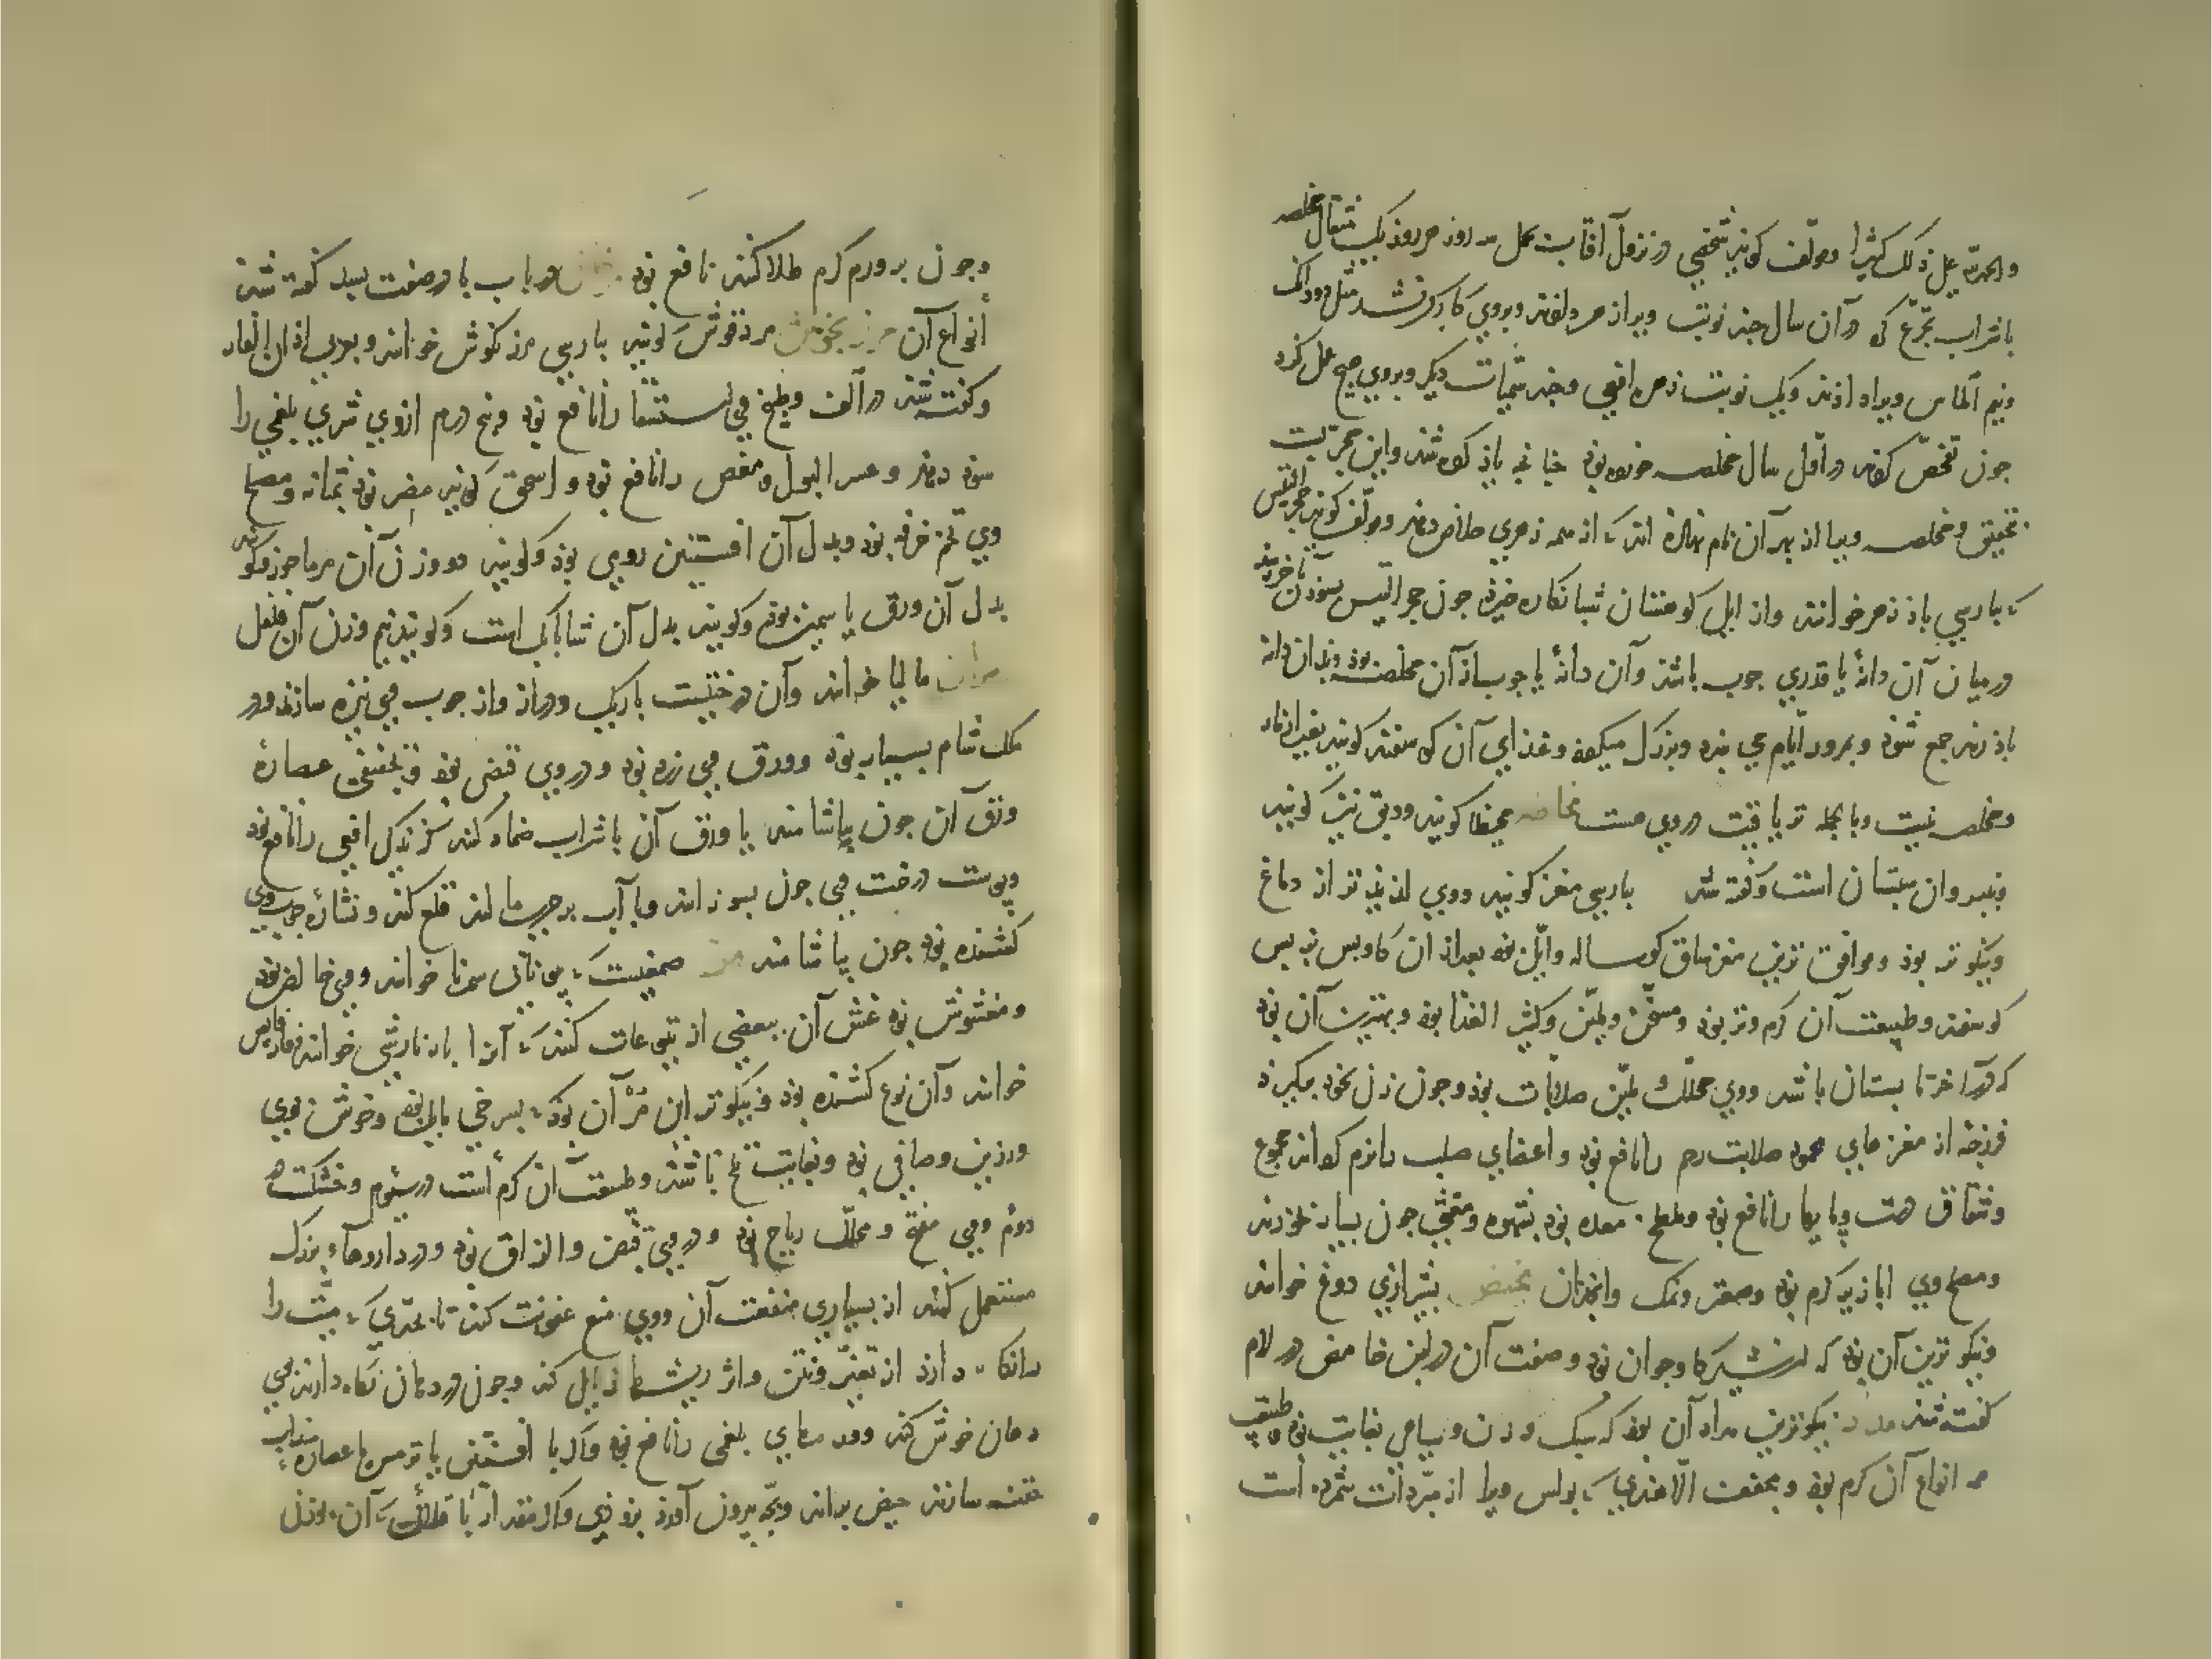 والحمد لله علی ذلک کثیرا مولف کوید شخصی در نزول آفتاب بحمل سه روز هر روز یک مثقال مخلصه
با شراب تجرع کرد در آن سال چند نوبت ویرا زهر دادند و بروی کارکر نشد مثل دو دانک
ونیم الماس ویرا دادند ویک نوبت زهره افعی وچند سمیات دیکر و بروی هیچ عمل نکرد
چون تفحص کردند در اول سال مخلصه خورده بود چنانچه یاذ کرده شد و این مجربست
بتحقیق ومخلصه ویرا از بهر آن نام نهاده اند که از همه زهری خلاص دهد ومولف کوید حجر التیس
که بپارسی باذ زهر خوانند واز ایل کوهستان شبانکاره خیزد چون حجر التیس
در میان آن دانهٔ یا قدری چوب باشد وآن دانهٔ یا چوب از آن مخلصه بوذ
باذ زهر جمع شوذ وبمرور ایام می بندد وبزرک میکردد وغذای آن کوسفند کویند بغیر از مار
ومخلصه نیست وبالجمله تریاقیت در وی هست مخاضه مخیطا کویند ودبق نیز کویند
وسبستان است وکفته شد بپارسی مغز کویند ووی لذیذتر از دماغ
ونیکوتر بوذ وموافق ترین مغز ساق کوساله وایل بوذ بعد از آن کاو پس بز پس
کوسفند وطبیعت آن کرم وتر بوذ ومسخن وملین وکثیر الغذا بوذ وبهترین آن بوذ
که در آخر تابستان باشد ووی محلل وملین صلابات بوذ وچون زن بخوذ برکیرد
فرزجه از مغزهای محموده صلابت رحم را نافع بوذ واعضای صلب را نرم کرداند مجموع
وشقاق دست وپایها را نافع بوذ ومعده بوذ بشهوه ومغثی چون بسیار خورند
ومصلح وی ابازیر کرم بوذ وصعتر ونمک وانجدان مخیض بشیرازی دوغ خوانند
ونیکوترین آن بوذ که از شیر کاو جوان بوذ وصفت آن در لبن حامض در لام
کفته شد مداد نیکوترین مداد آن بوذ که سبک وزن وسیاهی بغایت بوذ طبیعت
همه انواع آن کرم بوذ ومجفف الا هندی که بولس ویرا از مبردات شمرده است
وچون بر ورم کرم طلا کنند نافع بوذ در باب با در صفت بید کفته شد
انواع آن مرزنجوش مردقوش کویند بپارسی مرزنکوش خوانند وبعربی اذان الفار
وکفته شد در الف وطبیخ وی استسقا را نافع بوذ وپنج درم از وی شری بلغمی را
سود دهد وعسر البول ومغص را نافع بوذ واسحق کوید مضر بوذ بمثانه ومصلح
وی تخم خرفه بوذ وبدل آن افسنتین رومی بوذ وکویند دو وزن آن مرماحوز وکویند
بدل آن ورق یاسمین بوذ وکویند بدل آن شابابک است وکویند نیم وزن آن فلفل
مران مالیا خوانند وآن درختیست باریک ودراز واز چوب وی نیزه سازند ودر
ملک شام بسیار بوذ وورق وی زرد بوذ ودر وی قبضی بوذ وتجفیف عصارهٔ
ورق آن چون بیاشامند یا ورق آن با شراب ضماد کنند کزندکی افعی را نافع بوذ
وپوست درخت وی چون بسوزانند وبا آب بر جرب مالند قلع کند ونشارهٔ چوب وی
کشنده بوذ چون بیاشامند مر صمغیست که بیونانی سمرنا خوانند ووی خالص بوذ
ومغشوش بوذ غش آن ببعضی از یتوعات کنند که آن را خوانند
خوانند وآن نوع کشنده بوذ ونیکوترین مر آن بوذ که بسرخی مایل بوذ وخوش بوی
ورزین وصافی بوذ وبغایت تلخ باشد وطبیعت آن کرم است در سوم وخشکست در
دوم ووی مفتح ومحلل ریاح بوذ ودر وی قبض والزاق بوذ ودر داروهاء بزرک
مستعمل کنند از بسیاری منفعت آن ووی منع عفونت کند تا بحدی که میت را
نکاه دارد از تغیر ونتن واثر ریشها زایل کند وچون در دهان نکاه دارند بوی
دهان خوش کند وورمهای بلغمی را نافع بوذ واکر با افسنتین یا ترمس یا عصاره سذاب
حقنه سازند حیض براند وبچه بیرون آورد بزوذی واکر مقدار باقلائی از آن